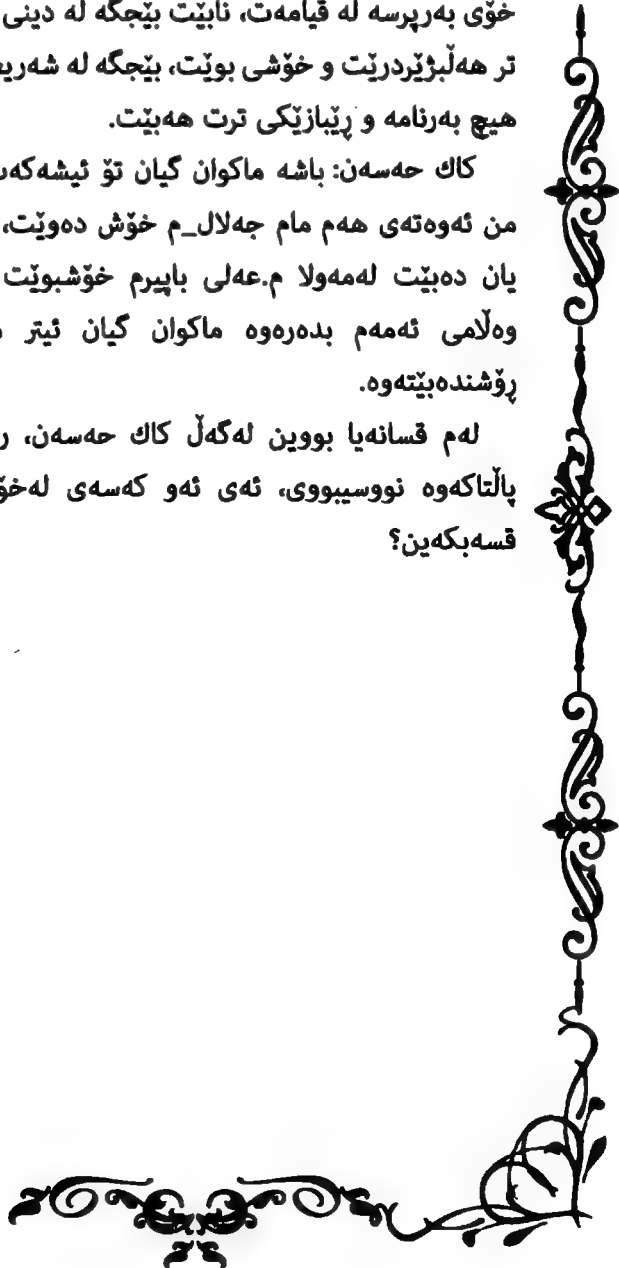 خۆی بەرپرسە لە قیامەت، نابێت بێجگە لە دینی
تر هەڵبژێردرێت و خۆشی بوێت، بێجگە لە
هیچ بەرنامە و ڕێبازێکی ترت هەبێت.
کاک حەسەن: باشە ماکوان گیان تۆ
من ئەوەتەی هەم مام جەلال_م خۆش دەوێت،
یان دەبێت لەمەولا م.عەلی باپیرم خۆشبوێت
وەڵامی ئەمەم بدەرەوە ماکوان گیان ئیتر
ڕۆشندەبێتەوە.
لەم قسانەیا بووین لەگەڵ کاک حەسەن،
پاڵتاکەوە نووسیبووی، ئەی ئەو کەسەی
قسەبکەین؟